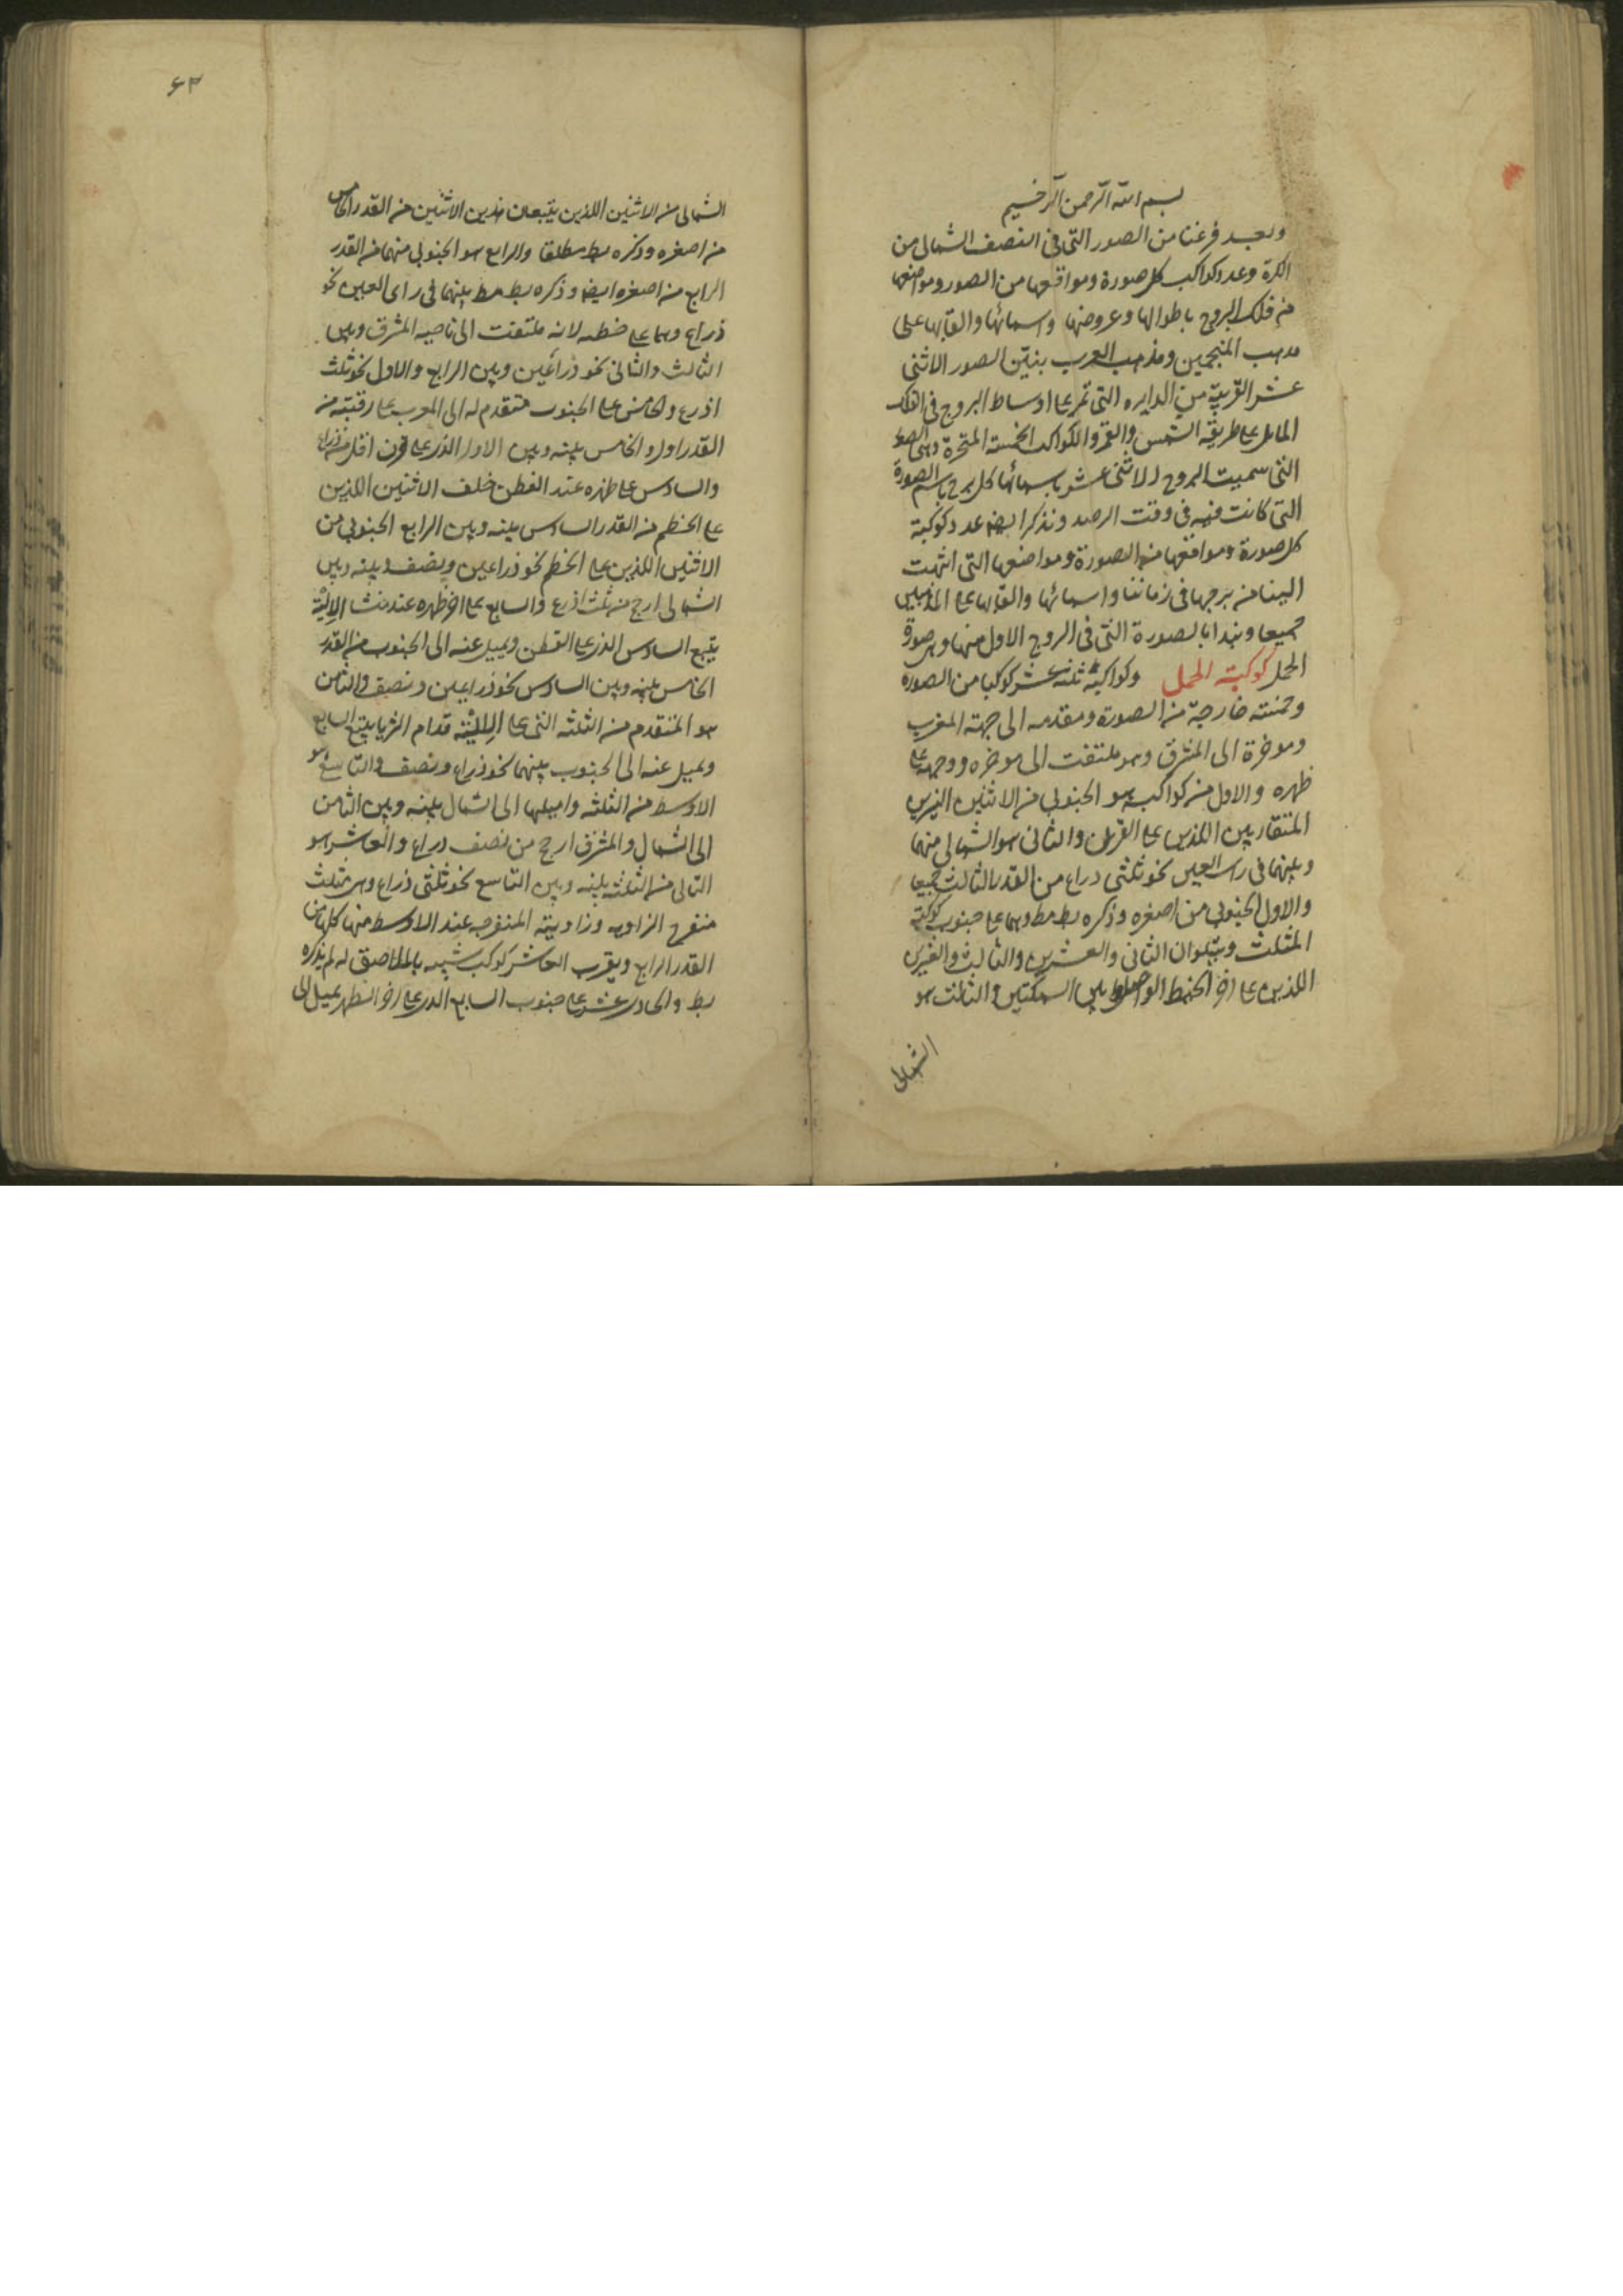 بسم الله الرحمن الرحيم
وبعد فرغنا من الصور التى فى النصف الشمالى من
الكرة وعدد كواكب كل صورة ومواقعها من الصور ومواضعها
من فلك البروج باطوالها وعروضها واسمائها والقابها على
مذهب المنجمين ومذهب العرب بنين الصور الاثنى
عشر القريبة من الدايره التى تمر على اوساط البروج فى الفلك
المايل على طريقه الشمس والقمر والكواكب الخمسة المتحيرة وهى الصور
التى سميت البروج الاثنى عشر باسمائها كل برج باسم الصورة
التى كانت فيه فى وقت الرصد ونذكر ايضا عدد كوكبة
كل صورة ومواقعها من الصورة ومواضعها التى انتهت
الينا من برجها فى زماننا واسمائها والقابها على المذهبين
جميعا ونبدا بالصورة التى فى البروج الاول منها وهى صورة
الحمل كوكبة الحمل وكواكبه ثلثه عشر كوكبا من الصوره
وخمسته خارجة من الصورة ومقدمه الى جهة المغرب
وموخرة الى المشرق وهو ملتفت الى موخره ووجهه على
ظهره والاول من كواكبه هو الجنوبى من الاثنين النيرين
المتقاربين اللذين على القرن والثانى هو الشمالى منهما
وبينهما فى راى العين نحو ثلثى ذراع من القدر الثالث جميعا
والاول الجنوبى من اصغره وذكره بطلميوس وهما على جنوب كوكبة
المثلث ويتلوان الثانى والعشرين والثالث والعشرين
اللذين على اخر الخيط الواصل بين السمكتين والثالث هو
الشمالى
۶۳
الشمالى من الاثنين اللذين يتبعان هذين الاثنين من القدر الخامس
من اصغره وذكره بط مطلقا والرابع هو الجنوبى منهما من القدر
الرابع من اصغره ايضا وذكره بط مط بينهما فى راى العين نحو
ذراع وهما على خطمه لانه ملتفت الى ناحيه المشرق وبين
الثالث والثانى نحو ذراعين وبين الرابع والاول نحو ثلث
اذرع والخامس على الجنوب متقدم له الى المغرب على رقبته من
القدر اول والخامس بينه وبين الاول الذى على قرن اقل من ذراع
والسادس على ظهره عند القطن خلف الاثنين اللذين
على الخطم من القدر السادس بينه وبين الرابع الجنوبى من
الاثنين اللذين على الخطم نحو ذراعين ونصف وبينه وبين
الشمالى ارجح من ثلث اذرع والسابع على اخر ظهره عند منشا الالية
يتبع السادس الذى على القطن ويميل عنه الى الجنوب من القدر
الخامس بينه وبين السادس نحو ذراعين ونصف والثامن
هو المتقدم من الثلثه التى على الالية قدام الثريا يتبع السابع
ويميل عنه الى الجنوب بينهما نحو ذراع ونصف والتاسع هو
الاوسط من الثلثه واميلها الى الشمال بينه وبين الثامن
الى الشمال والمشرق ارجح من نصف ذراع والعاشر هو
التالى من الثلثه بينه وبين التاسع نحو ثلثى ذراع وهى مثلث
منفرج الزاويه وزاويته المنفرجه عند الاوسط منها كلها من
القدر الرابع وبقرب العاشر كوكب شبيه بالملاصق له لم يذكره
بط والحادى عشر على جنوب السابع الذى على اخر الظهر يميل الى